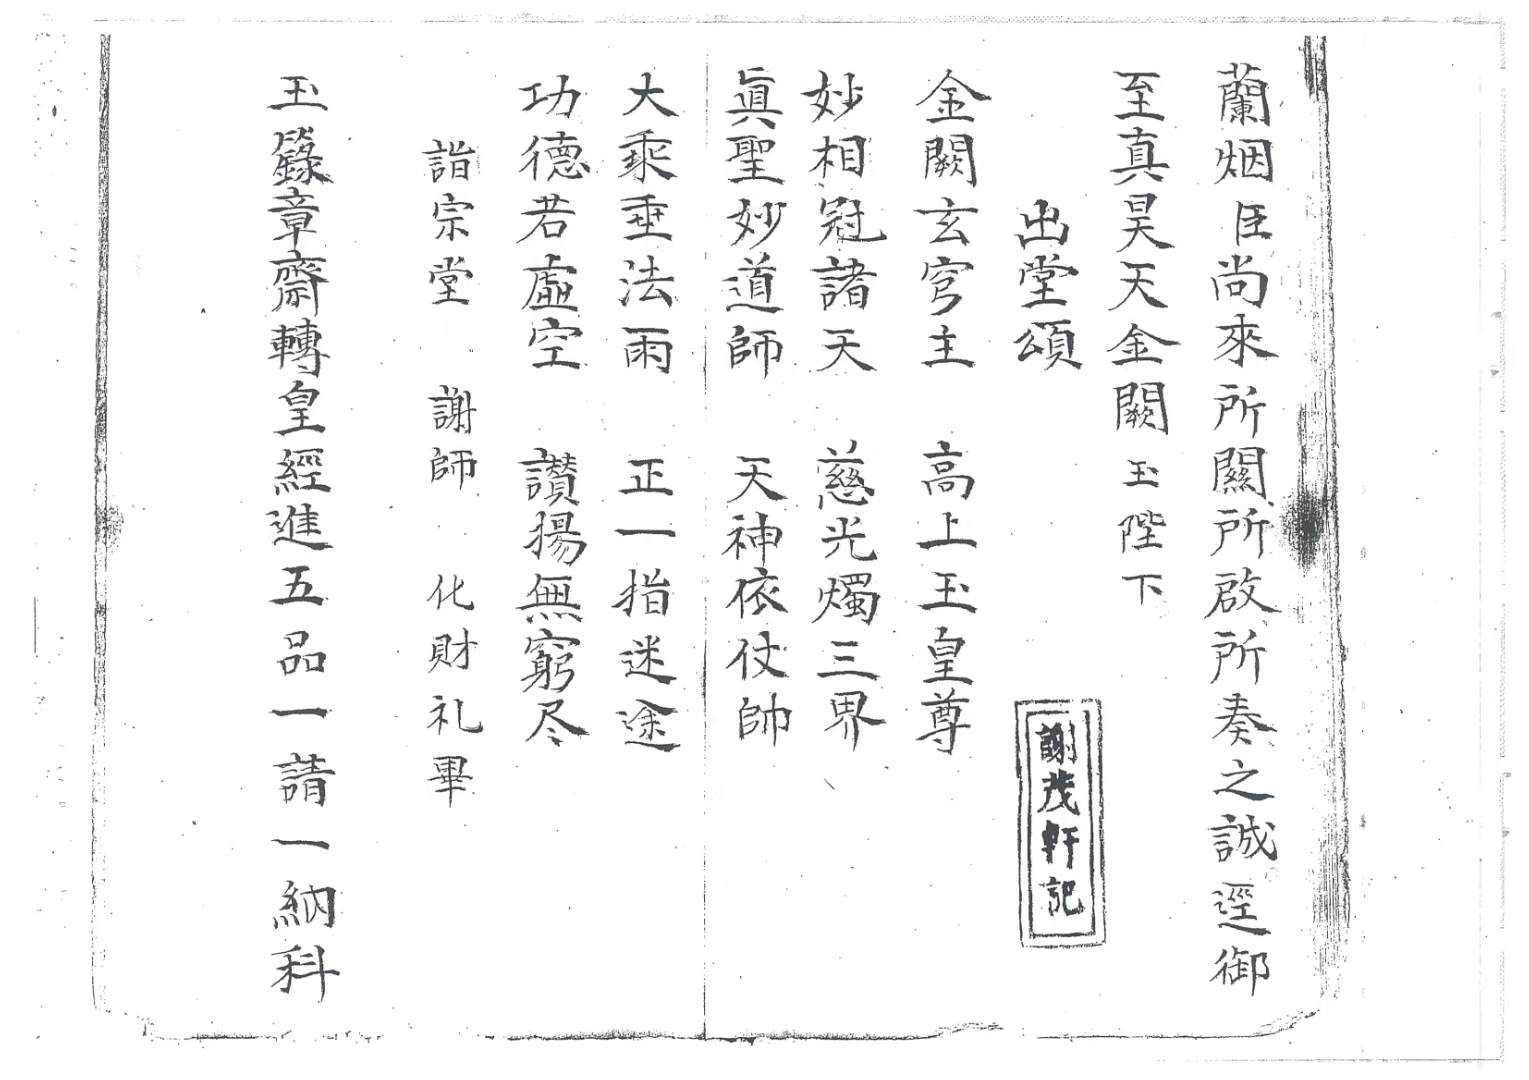 蘭烟臣尚來所關所啟所奏之誠逕御
至真昊天金闕玉陛下
出堂頌
謝茂軒記
金闕玄穹主 高上玉皇尊
妙相冠諸天 慈光燭三界
眞聖妙道師 天神依仗帥
大乘垂法雨 正一指迷途
功德若虛空 讃揚無窮尽
詣宗堂 謝師 化財礼畢
玉籙章齋轉皇經進五品一請一納科